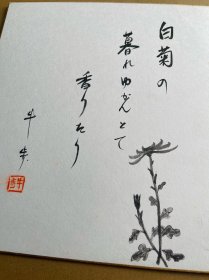 白菊の
暮れゆかんとて
香りたり